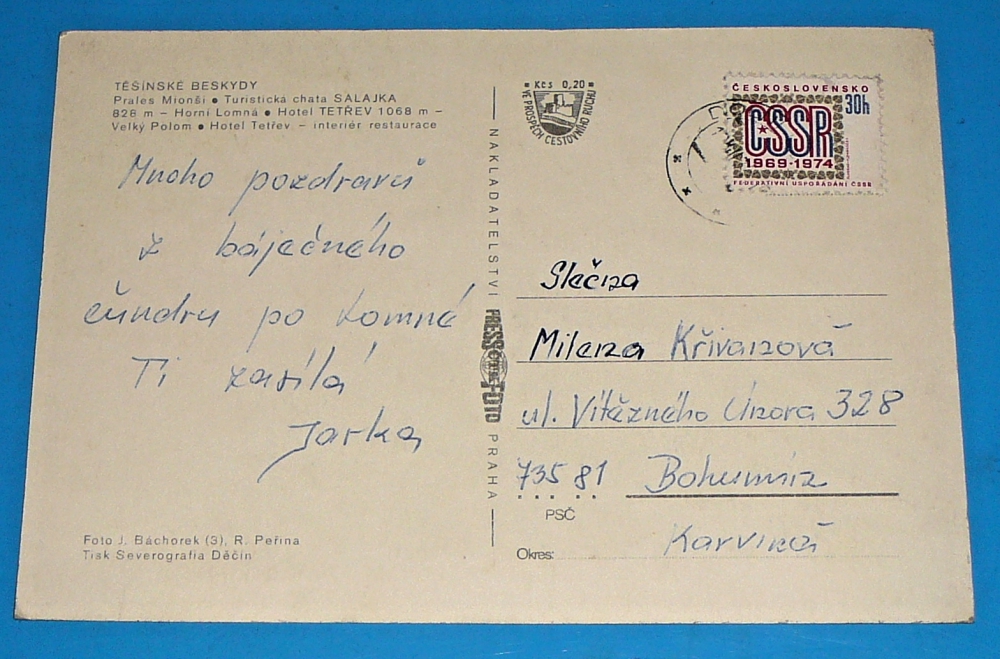 TĚŠÍNSKÉ BESKYDY
Prales Mionší ● Turistická chata SALAJKA
828 m – Horní Lomná ● Hotel TETŘEV 1068 m –
Velký Polom ● Hotel Tetřev – interiér restaurace
Mnoho pozdravů
z báječného
čundru po Lomné
Ti zasílá
Jarka
Foto J. Báchorek (3), R. Peřina
Tisk Severografia Děčín
NAKLADATELSTVÍ PRESSFOTO PRAHA
Kčs 0,20
VE PROSPĚCH CESTOVNÍHO RUCHU
ČESKOSLOVENSKO
30h
ČSSR
1969-1974
FEDERATIVNÍ USPOŘÁDÁNÍ ČSSR
Slečna
Milena Křivanzová
ul. Vítězného Února 328
735 81 Bohumín
PSČ
Okres: Karviná